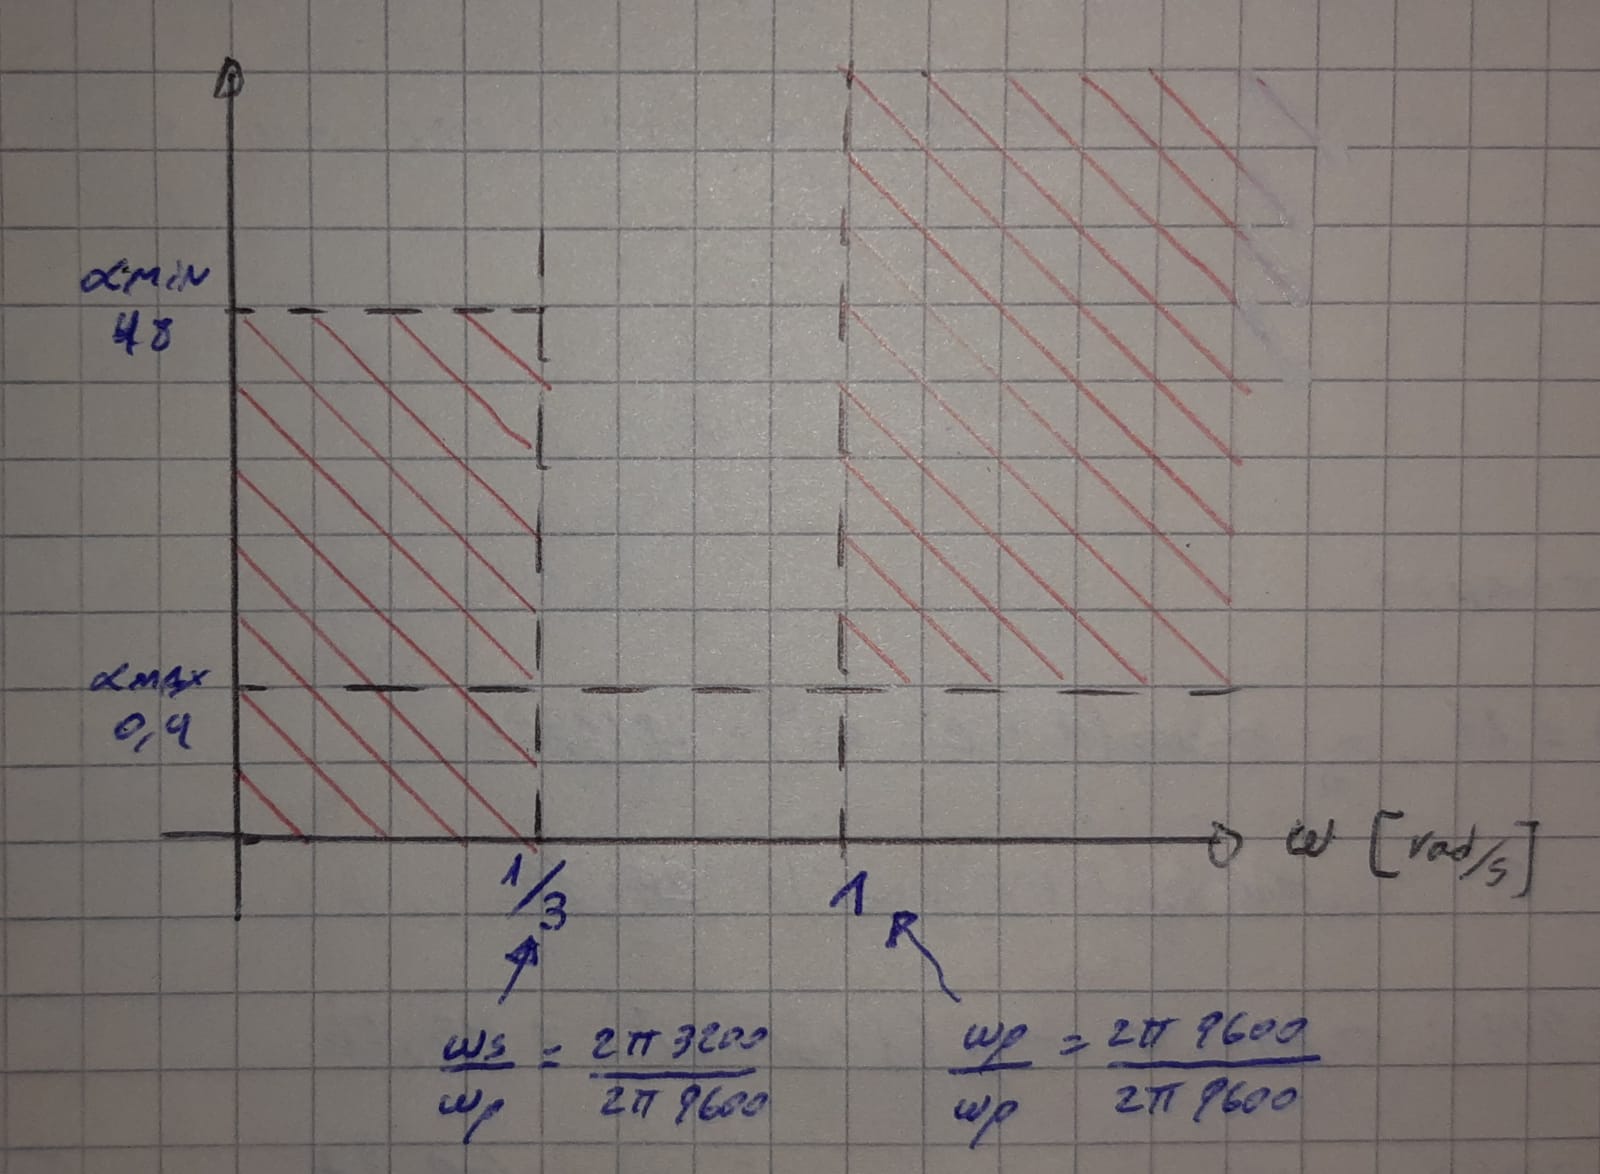 αMIN
48
αMAX
0,4
1/3
1
ω [rad/s]
ωs/ωp = 2π 3200 / 2π 9600
ωp/ωp = 2π 9600 / 2π 9600